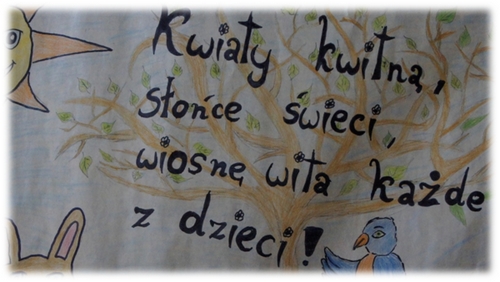 Kwiaty kwitną,
słońce świeci,
wiosnę wita każde
z dzieci!